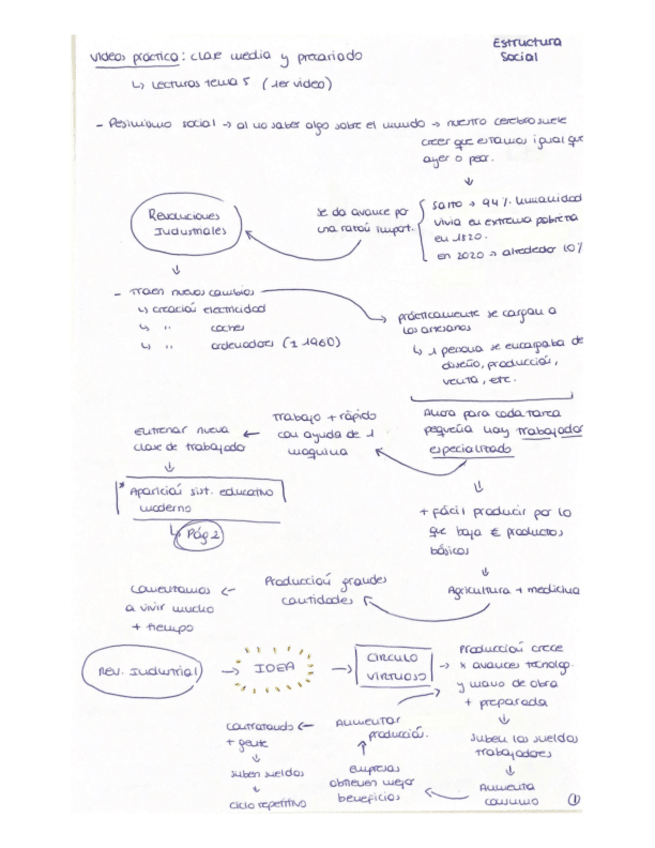 Estructura
Social
Videos práctica: clase media y precariado
↳ Lecturas tema 5 (1er video)
- Pesimismo social → al no saber algo sobre el mundo → nuestro cerebro suele
creer que estamos igual que
ayer o peor.
↓
94% humanidad
vivía en extrema pobreza
en 1820.
en 2020 → alrededor 10%
se da avance por
una razón import.
Revoluciones
Industriales
↓
- Traen nuevos cambios
↳ creación electricidad
↳ " coches
↳ " ordenadores (± 1960)
prácticamente se cargan a
los artesanos
↳ 1 persona se encargaba de
diseño, producción,
venta, etc.
Ahora para cada tarea
pequeña hay trabajador
especializado
Trabajo + rápido
con ayuda de 1
maquina
←
Entrenar nueva
clase de trabajador
↓
* Aparición sist. educativo
moderno
↳ Pág 2
↓
+ fácil producir por lo
que baja € productos
básicos
↓
Agricultura + medicina
Producción grandes
cantidades
←
comentamos
a vivir mucho
+ tiempo
Rev. Industrial → IDEA → CIRCULO
VIRTUOSO →
Producción crece
x avances tecnolog.
y mano de obra
+ preparada
↓
Suben los sueldos
trabajadores
↓
Aumenta
consumo
←
empresas
obtienen mejor
beneficios
↑
Aumentar
producción.
←
contratando
+ gente
↓
suben sueldos
↓
ciclo repetitivo
1